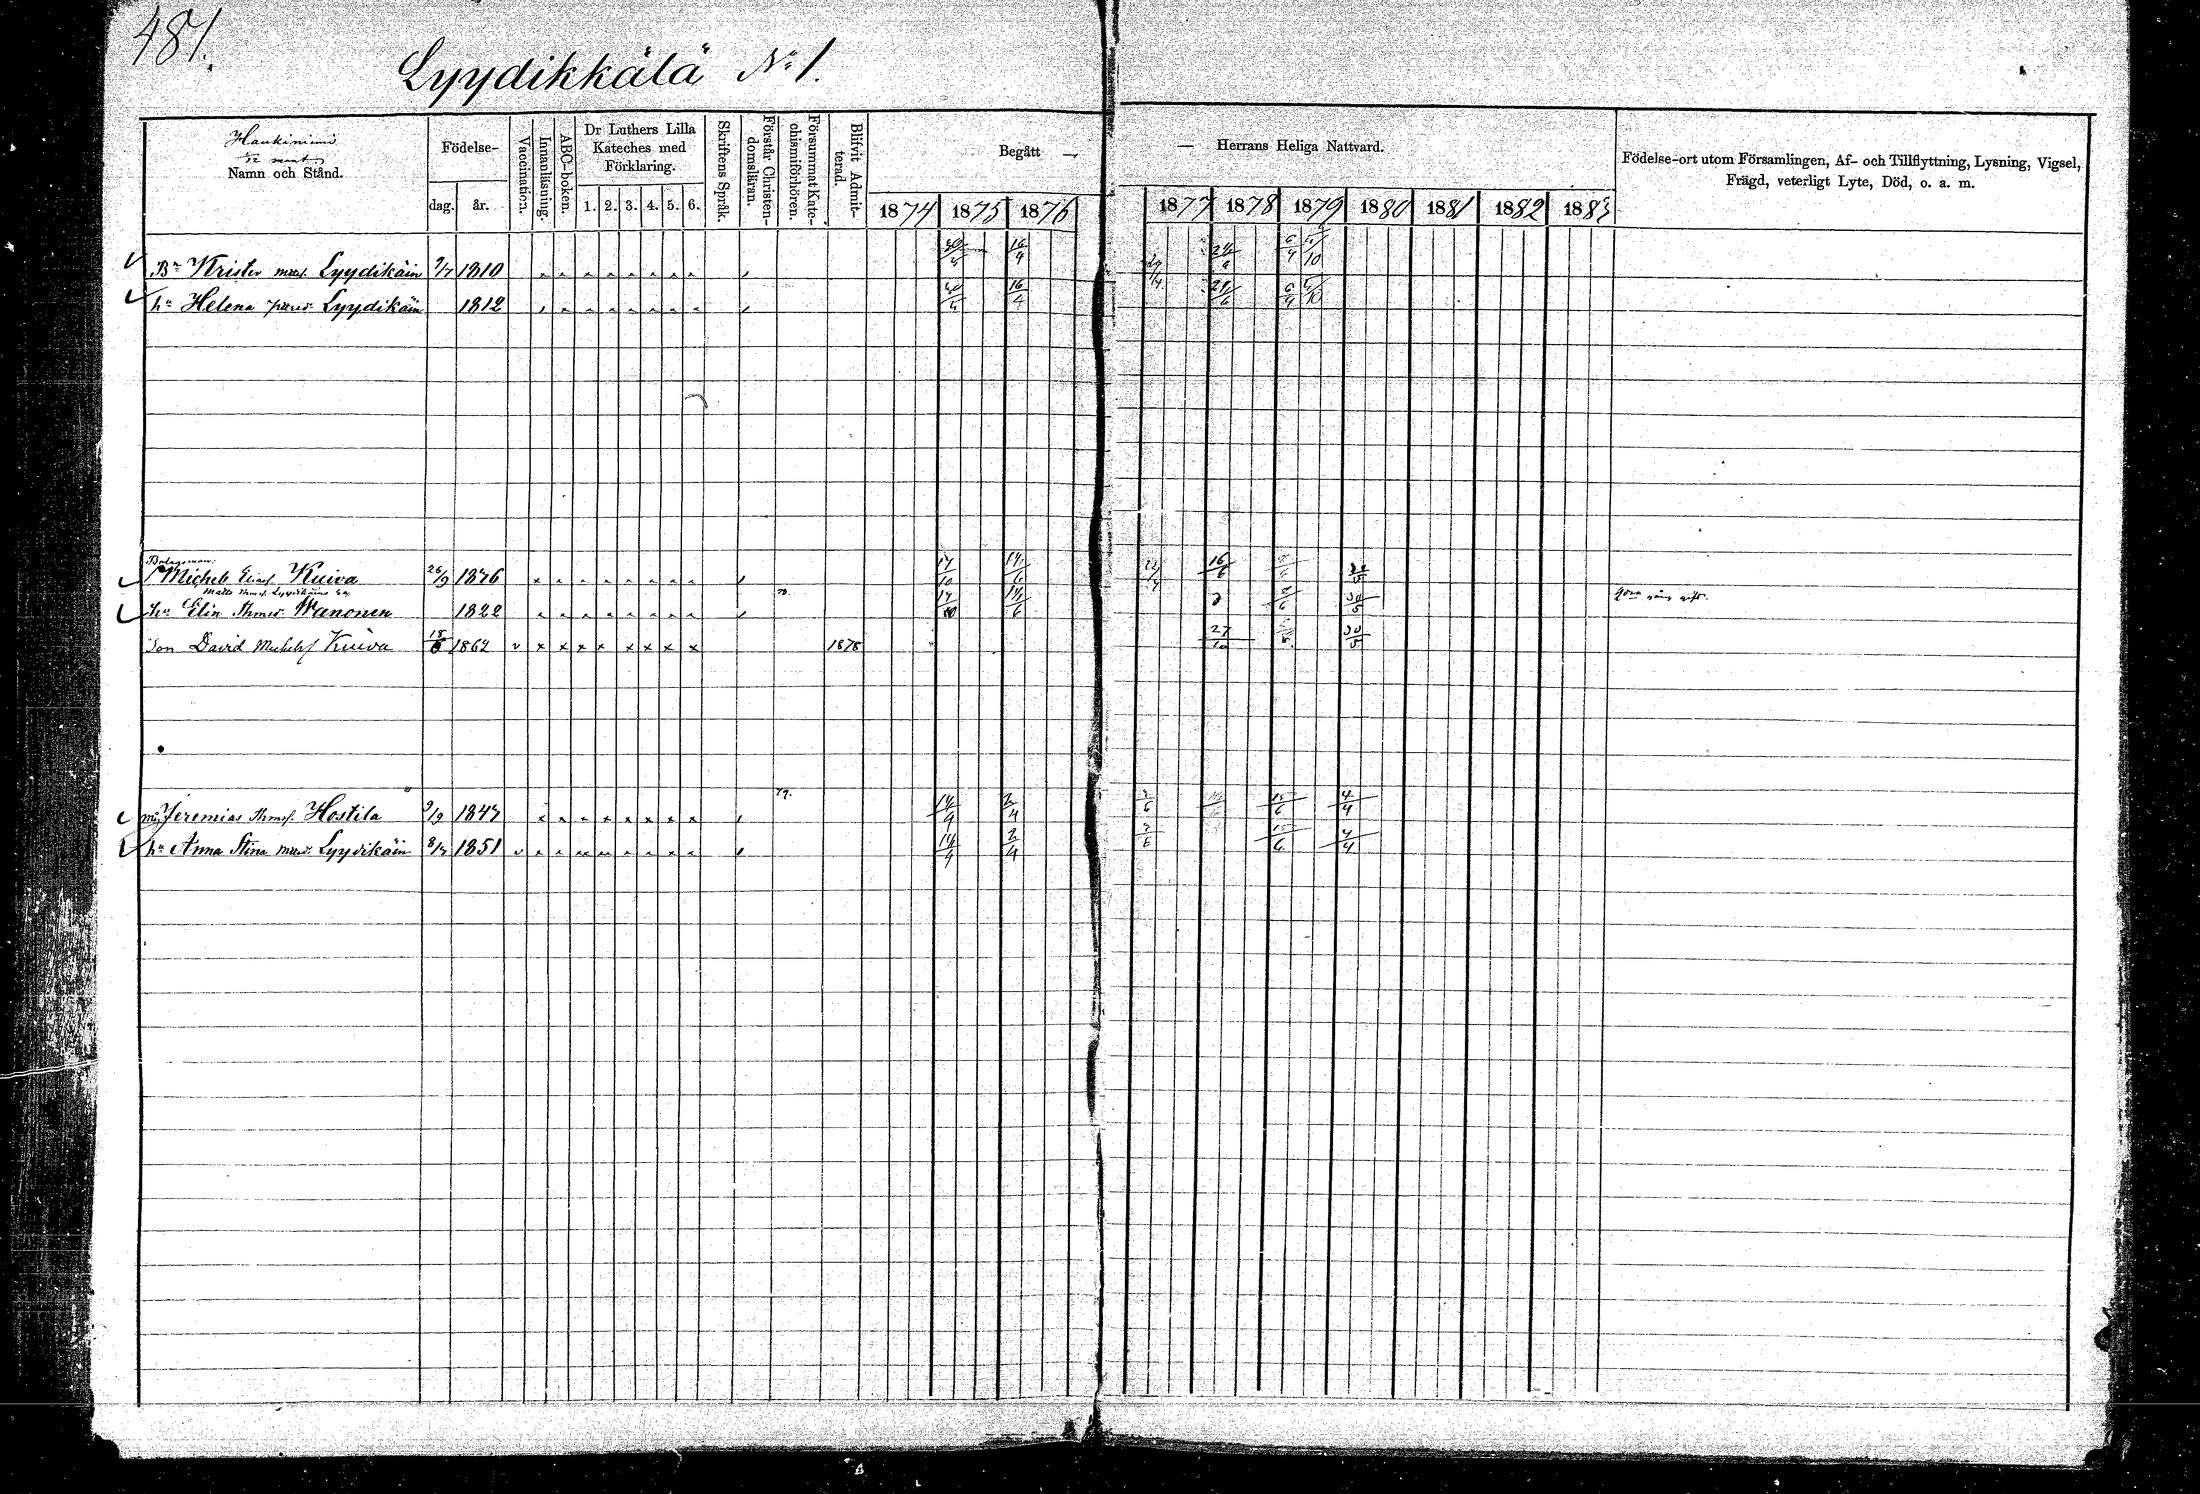 481.
Lyydikkälä No 1.
Haukiniemi
1/12 mant.
Namn och Stånd.
Födelse-
dag. år.
Vaccination.
Innanläsning.
ABC-boken.
Dr Luthers Lilla Kateches med Förklaring.
1. 2. 3. 4. 5. 6.
Skriftens Språk.
Förstår Christendomsläran.
Försummat Katechismiförhören.
Blifvit Admitterad.
Begått — — Herrans Heliga Nattvard.
1874 1875 1876 1877 1878 1879 1880 1881 1882 1883
Födelse-ort utom Församlingen, Af- och Tillflyttning, Lysning, Vigsel,
Frägd, veterligt Lyte, Död, o. a. m.
Bn Krister Lyydikäin 1810 16/4
hu Helena Lyydikäin 1812 16/4
Bolagsman:
Michels Eliasf. Kuiva 26/9 1876 14/6 16/6
hu Elin Thmsd. Wanonen 1822 14/6 30/5
Son David Michelsf Kuiva 1862 v x x x x x x x x 1878 27/10 30/5
79.
Jeremias Thmsf. Hostila 9/9 1847 14/9 2/4 3/6 15/6 4/4
hu Anna Stina Lyydikäin 8/7 1851 14/9 2/4 3/6 15/6 4/4